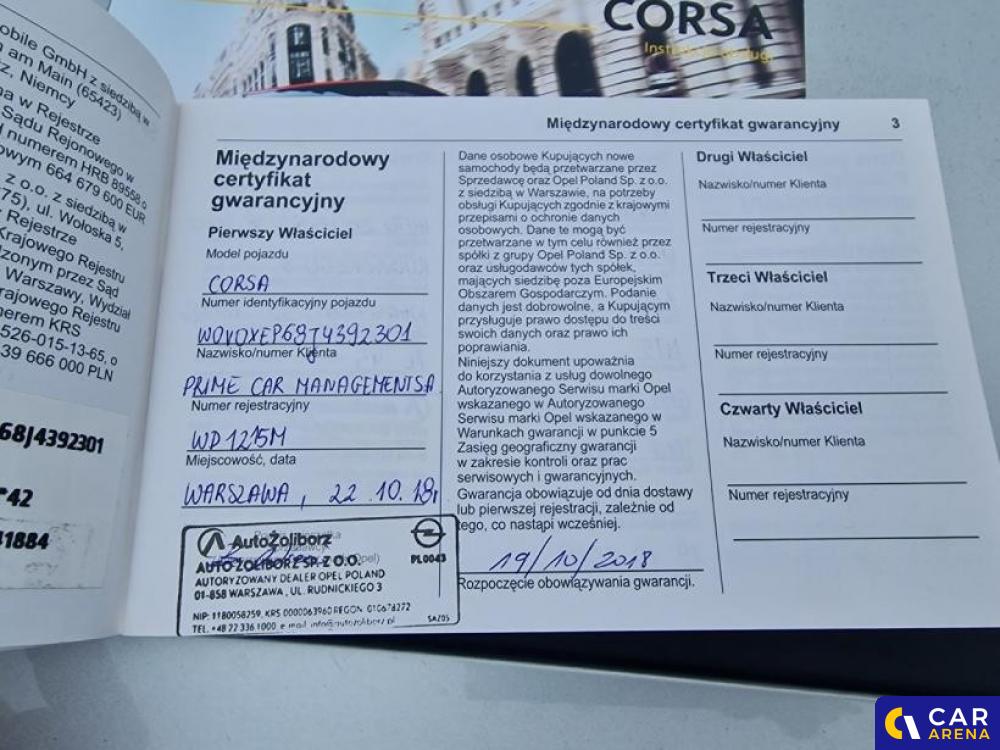 CORSA
Instrukcja obsługi
obile GmbH z siedzibą w
am Main (65423)
z, Niemcy
na w Rejestrze
Sądu Rejonowego w
numerem HRB 89558 o
owym 664 679 600 EUR
z o.o. z siedzibą w
75), ul. Wołoska 5,
Rejestrze
Krajowego Rejestru
dzonym przez Sąd
Warszawy, Wydział
rajowego Rejestru
merem KRS
526-015-13-65, o
39 666 000 PLN
68J4392301
*42
41884
Międzynarodowy certyfikat gwarancyjny 3
Międzynarodowy
certyfikat
gwarancyjny
Pierwszy Właściciel
Model pojazdu
CORSA
Numer identyfikacyjny pojazdu
W0V0XEP68J4392301
Nazwisko/numer Klienta
PRIME CAR MANAGEMENT SA
Numer rejestracyjny
WD 1215M
Miejscowość, data
WARSZAWA, 22.10.18r
AutoŻoliborz
AUTO ŻOLIBORZ SP. Z O.O.
PL0043
AUTORYZOWANY DEALER OPEL POLAND
01-858 WARSZAWA, UL. RUDNICKIEGO 3
NIP: 1180058259, KRS 0000063960 REGON 010678272
TEL. +48 22 336 1000 e-mail info@autozoliborz.pl
SAZ05
Dane osobowe Kupujących nowe
samochody będą przetwarzane przez
Sprzedawcę oraz Opel Poland Sp. z o.o.
z siedzibą w Warszawie, na potrzeby
obsługi Kupujących zgodnie z krajowymi
przepisami o ochronie danych
osobowych. Dane te mogą być
przetwarzane w tym celu również przez
spółki z grupy Opel Poland Sp. z o.o.
oraz usługodawców tych spółek,
mających siedzibę poza Europejskim
Obszarem Gospodarczym. Podanie
danych jest dobrowolne, a Kupującym
przysługuje prawo dostępu do treści
swoich danych oraz prawo ich
poprawiania.
Niniejszy dokument upoważnia
do korzystania z usług dowolnego
Autoryzowanego Serwisu marki Opel
wskazanego w Autoryzowanego
Serwisu marki Opel wskazanego w
Warunkach gwarancji w punkcie 5
Zasięg geograficzny gwarancji
w zakresie kontroli oraz prac
serwisowych i gwarancyjnych.
Gwarancja obowiązuje od dnia dostawy
lub pierwszej rejestracji, zależnie od
tego, co nastąpi wcześniej.
19/10/2018
Rozpoczęcie obowiązywania gwarancji.
Drugi Właściciel
Nazwisko/numer Klienta
Numer rejestracyjny
Trzeci Właściciel
Nazwisko/numer Klienta
Numer rejestracyjny
Czwarty Właściciel
Nazwisko/numer Klienta
Numer rejestracyjny
CAR
ARENA